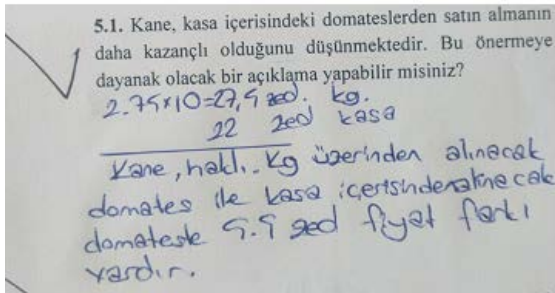 5.1. Kane, kasa içerisindeki domateslerden satın almanın
daha kazançlı olduğunu düşünmektedir. Bu önermeye
dayanak olacak bir açıklama yapabilir misiniz?
2.75x10=27,5 zed. kg.
22 zed kasa
Kane, haklı. Kg üzerinden alınacak
domates ile kasa içerisinden alınacak
domateste 5.5 zed fiyat farkı
vardır.